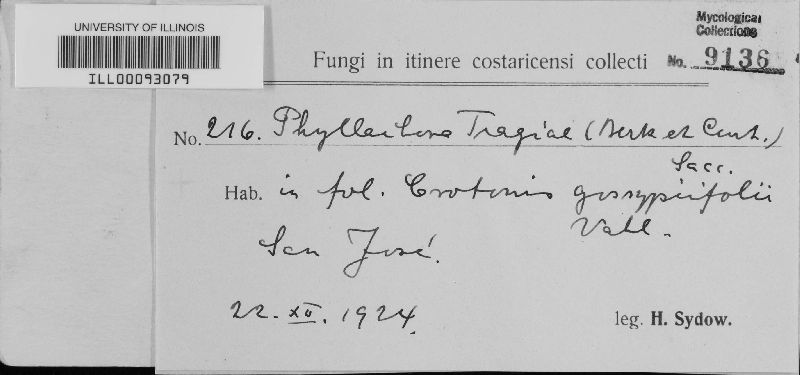 UNIVERSITY OF ILLINOIS
ILL00093079
Mycological
Collections
Fungi in itinere costaricensi collecti No. 9136
No. 216. Phyllachora Tragiae (Berk et Curt.)
Sacc.
Hab. in fol. Crotonis gossypiifolii
Vahl.
San José.
22. XII. 1924.
leg. H. Sydow.